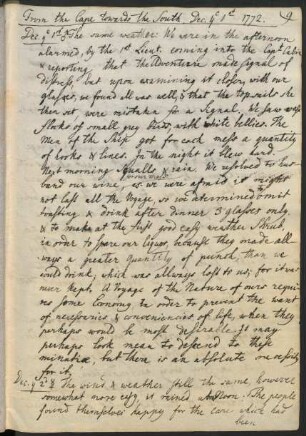 From the Cape towards the South. Dec. ye 1st 1772. 9
Dec. ye 1st The same weather. We were in the afternoon
alarmed, by the 1st Lieut. coming into the Capt. Cabin
& reporting, that the Adventure made Signal of
distress, but upon examining it closer, with our
glasses, we found all was well, & that the topsails she
then set, were mistaken for a Signal. We saw some
flocks of small grey birds, with white bellies. The
Men of the Ship got for each mess a quantity
of hooks & lines. In the night it blew hard.
Next morning Squalls & rain. We resolved to hus-
band our wine, as we were afraid it might
not last all the Voyage, so we determined to omit
toasting & drink after dinner 3 glasses only,
& to make at the first good easy weather Shrub
in order to spare our liquor, because they made all-
ways a greater quantity of punch, than we
could drink, which was allways lost to us; for it was
never kept. A Voyage of the Nature of ours requi-
res some Economy in order to prevent the want
of necessaries & conveniencies of life, when they
perhaps would be most desirable; it may
perhaps look mean to descend to these
minutiae, but there is an absolute necessity
for it.
Dec. ye 2d The wind & weather still the same, however
somewhat more easy, it rained. The people
found themselves happy for the care which had
been